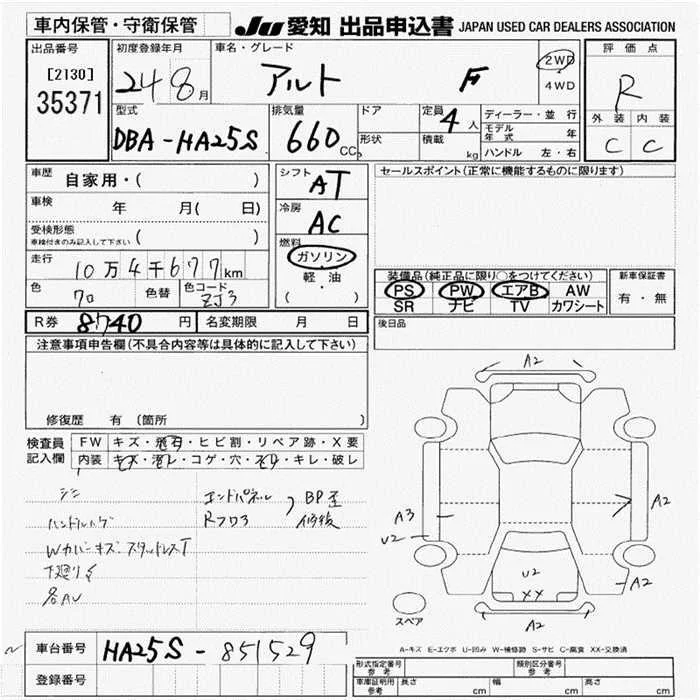 車内保管・守衛保管 JU 愛知 出品申込書 JAPAN USED CAR DEALERS ASSOCIATION
出品番号 初度登録年月 車名・グレード 評価点
[2130] 24 8月 アルト F 2WD R
35371 4WD
外装 内装
型式 排気量 ドア 定員 4人 ディーラー・並行
DBA-HA25S 660cc 形状 積載 kg モデル年式 年
ハンドル 左・右 C C
車歴 自家用・( ) シフト AT セールスポイント(正常に機能するものに限ります)
車検 年 月( 日) 冷房 AC
受検形態
車検付きのみ記入して下さい ( ) 燃料 ガソリン
走行 10万4千677km 軽・油
( )
装備品(純正品に限り○をつけてください) 新車保証書
色 色替 色コード ZJ3
PS PW エアB AW 有・無
SR ナビ TV カワシート
R券 8740円 名変期限 月 日 後日品
注意事項申告欄(不具合内容等は具体的に記入して下さい)
修復歴 有 (箇所 )
検査員 FW キズ・飛石・ヒビ割・リペア跡・X要
記入欄 内装 キズ・汚レ・コゲ・穴・スレ・キレ・破レ
エンドパネル BP歪
Rフロア 修後
ハンドルハゲ
Wカバーキズ・スタッドレスT
下廻りサ
各AU
A2
A3
U2
A2
U2
XX
A2
A2
スペア
A-キズ E-エクボ U-凹み W-補修跡 S-サビ C-腐食 XX-交換済
車台番号 HA25S-851529
登録番号
形式指定番号 参考 類別区分番号 参考
車庫証明用 参考 長さ cm 幅 cm 高さ cm